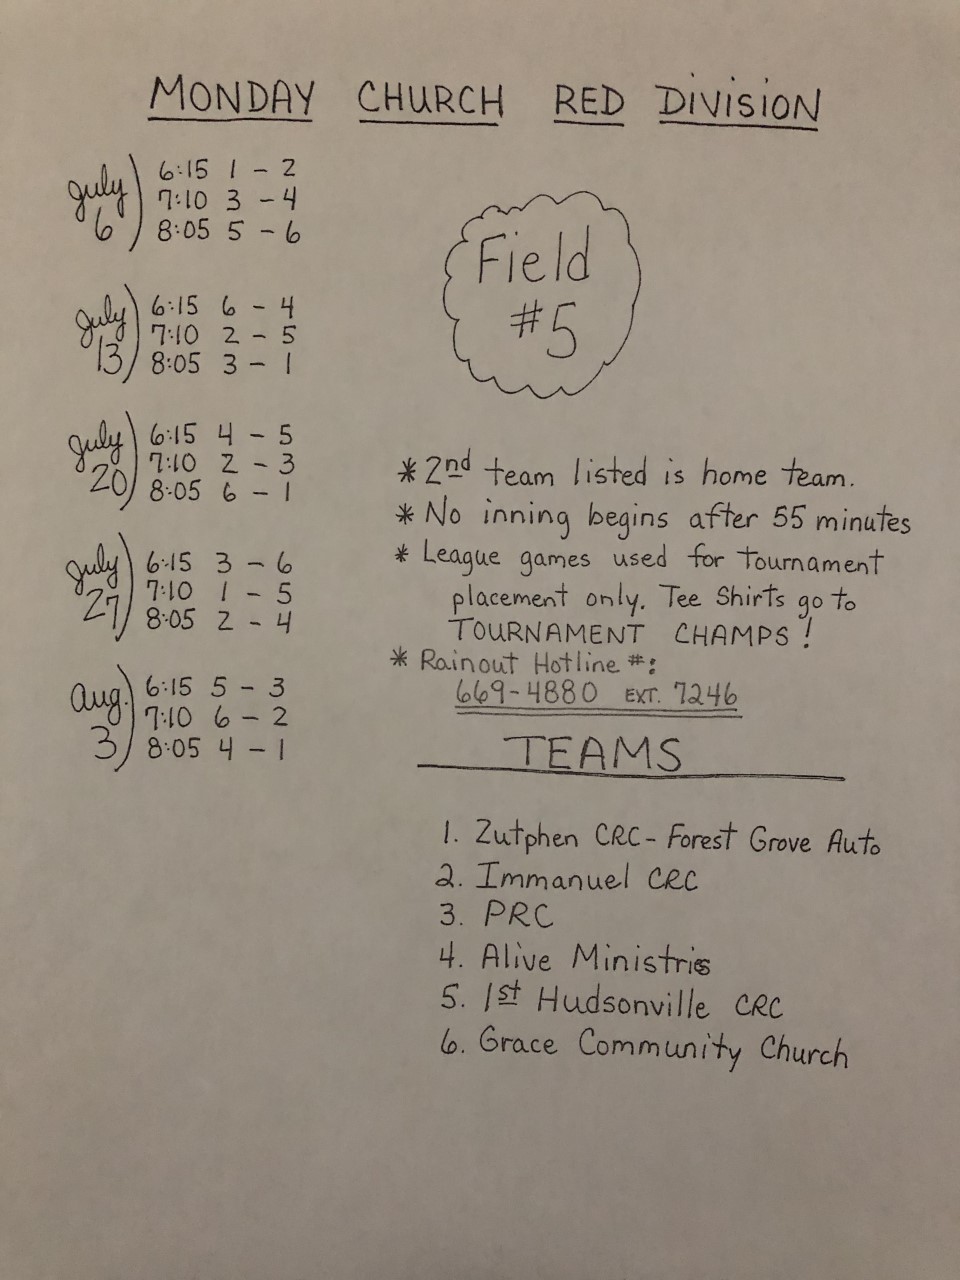 MONDAY CHURCH RED DIVISION
July 6) 6:15 1 - 2
7:10 3 - 4
8:05 5 - 6
July 13) 6:15 6 - 4
7:10 2 - 5
8:05 3 - 1
July 20) 6:15 4 - 5
7:10 2 - 3
8:05 6 - 1
July 27) 6:15 3 - 6
7:10 1 - 5
8:05 2 - 4
Aug. 3) 6:15 5 - 3
7:10 6 - 2
8:05 4 - 1
Field
#5
* 2nd team listed is home team.
* No inning begins after 55 minutes
* League games used for tournament
placement only. Tee Shirts go to
TOURNAMENT CHAMPS!
* Rainout Hotline #:
669-4880 EXT. 7246
TEAMS
1. Zutphen CRC - Forest Grove Auto
2. Immanuel CRC
3. PRC
4. Alive Ministries
5. 1st Hudsonville CRC
6. Grace Community Church